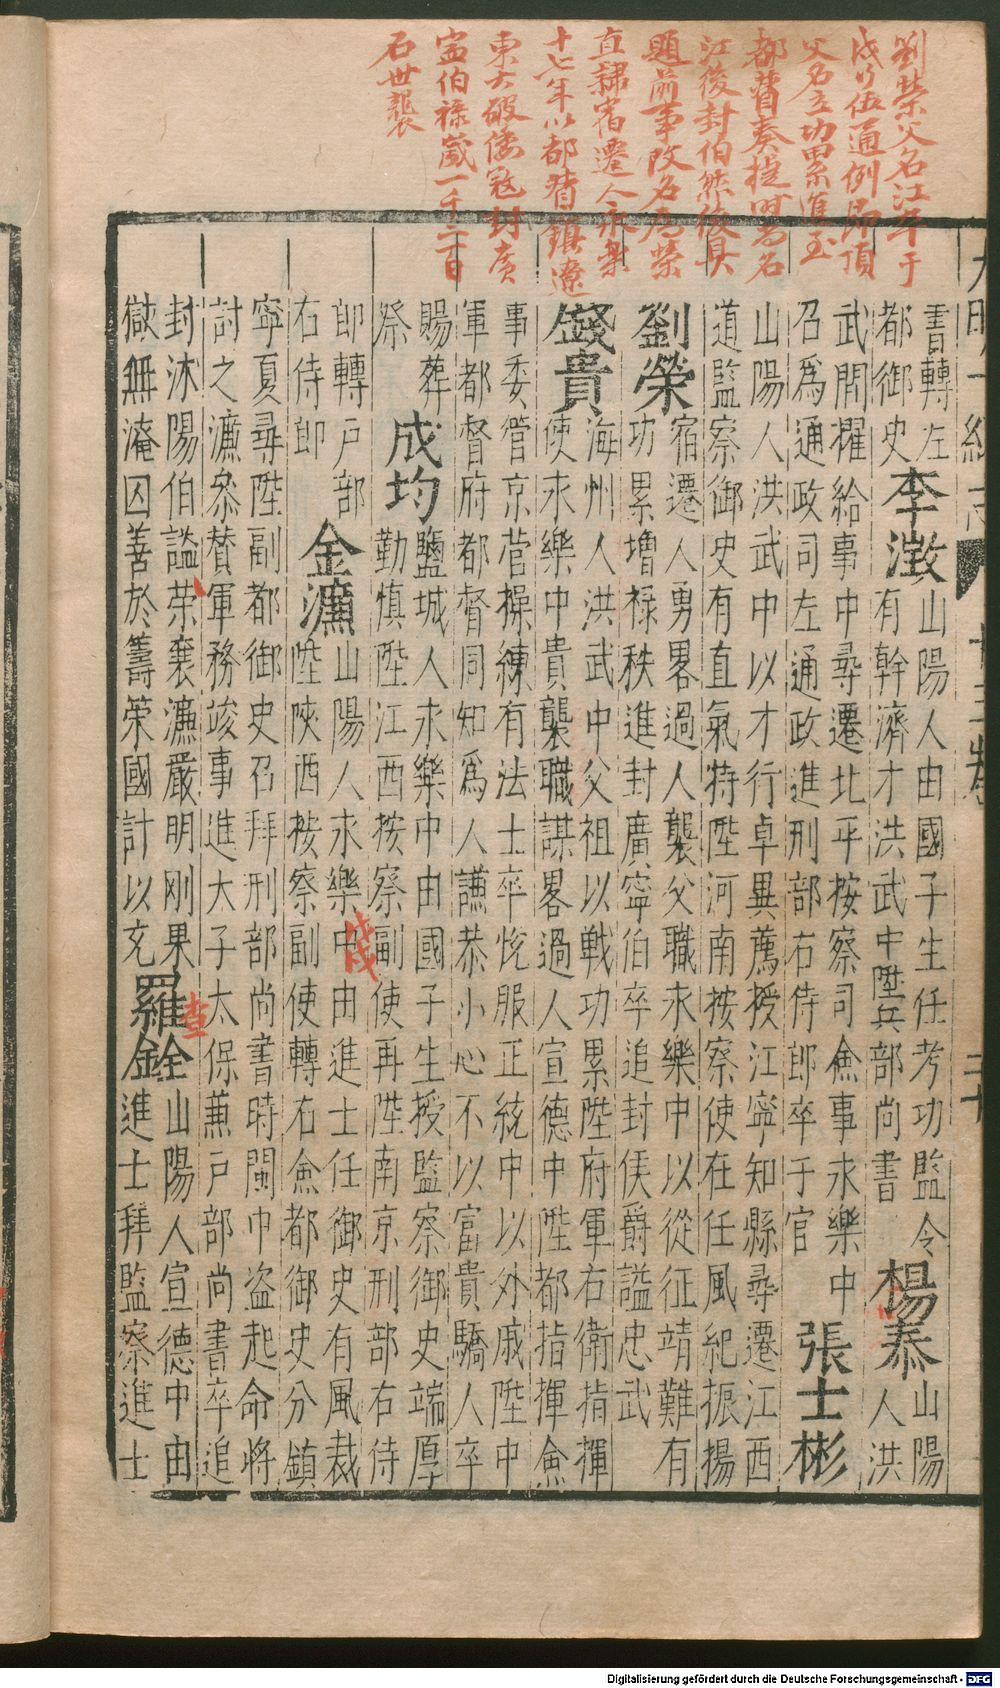 劉榮父名江卒于
戍行伍通例即頂
父名立功累進至
都督奏捷時爲名
江後封伯然後具
題前事改名爲榮
直隸宿遷人永樂
十七年以都督鎮遼
東大破倭寇封廣
寧伯祿歲一千二百
石世襲
書轉左
都御史
李澂
山陽人由國子生任考功監令
有幹濟才洪武中陞兵部尚書
楊泰
山陽
人洪
武間擢給事中尋遷北平按察司僉事永樂中
召爲通政司左通政進刑部右侍郎卒于官
張士彬
山陽人洪武中以才行卓異薦授江寧知縣尋遷江西
道監察御史有直氣特陞河南按察使在任風紀振揚
劉榮
宿遷人勇畧過人襲父職永樂中以從征靖難有
功累增祿秩進封廣寧伯卒追封侯爵謚忠武
錢貴
海州人洪武中父祖以戰功累陞府軍右衛指揮
使永樂中貴襲職謀畧過人宣德中陞都指揮僉
事委管京營操練有法士卒悅服正統中以外戚陞中
軍都督府都督同知爲人謙恭小心不以富貴驕人卒
賜葬
祭
成均
鹽城人永樂中由國子生授監察御史端厚
勤慎陞江西按察副使再陞南京刑部右侍
郎轉戶部
右侍郎
金濂
山陽人永樂中由進士任御史有風裁
陞陝西按察副使轉右僉都御史分鎮
戊戌
寧夏尋陞副都御史召拜刑部尚書時閩中盜起命將
討之濂叅賛軍務竣事進大子太保兼戶部尚書卒追
封沭陽伯謚榮襄濂嚴明剛果
獄無淹囚善於籌策國計以充
羅銓
查
山陽人宣德中由
進士拜監察進士
大明一統志
十三卷
二十
Digitalisierung gefördert durch die Deutsche Forschungsgemeinschaft - DFG